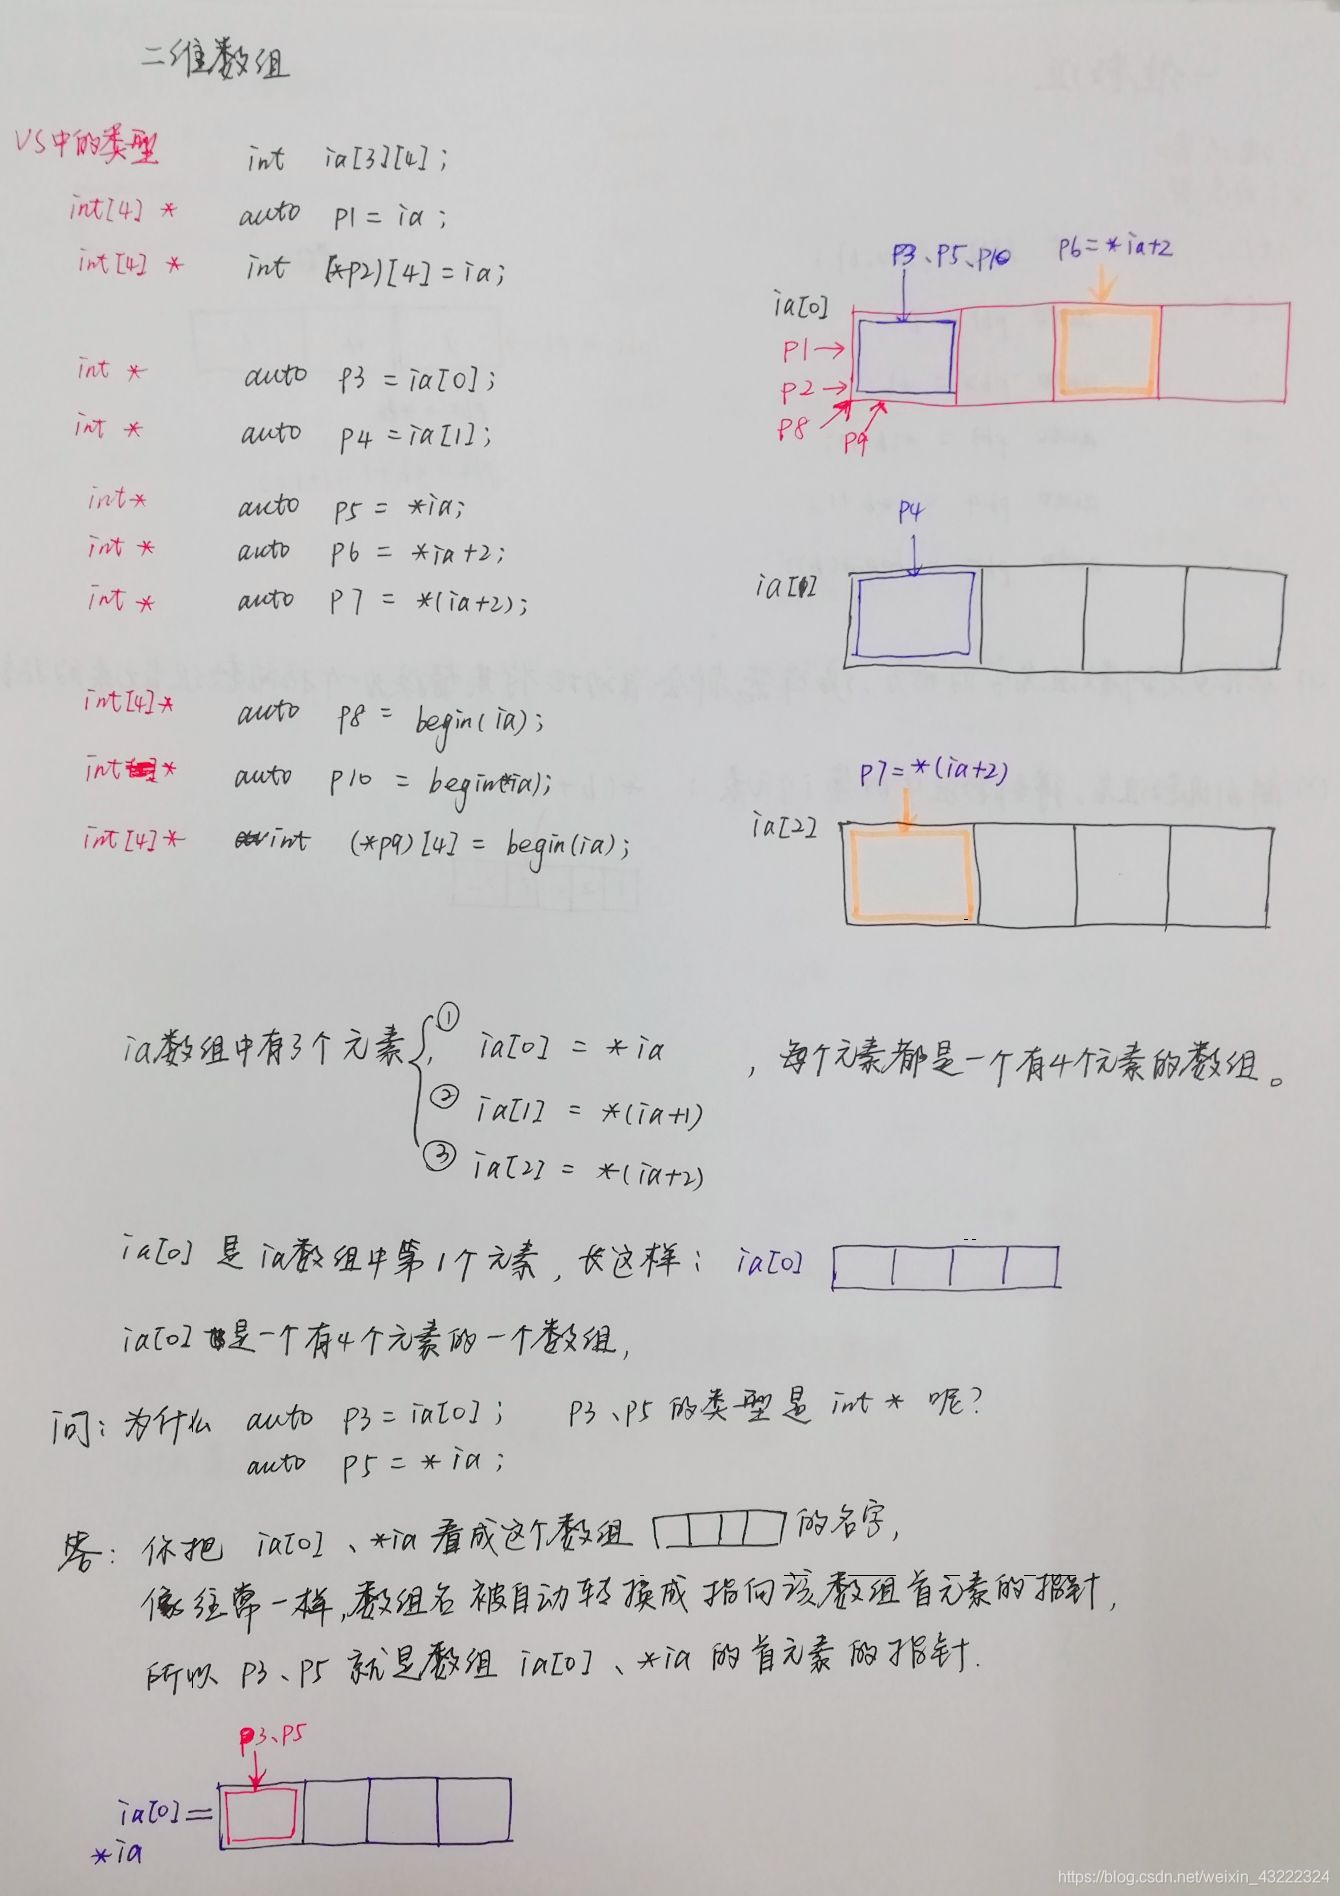 二维数组
VS中的类型 int ia[3][4];
int[4] * auto p1 = ia;
int[4] * int (*p2)[4] = ia;
int * auto p3 = ia[0];
int * auto p4 = ia[1];
int * auto p5 = *ia;
int * auto p6 = *ia+2;
int * auto p7 = *(ia+2);
int[4] * auto p8 = begin(ia);
int * auto p10 = begin(*ia);
int[4] * int (*p9)[4] = begin(ia);
p3、p5、p10 p6=*ia+2
ia[0]
p1→
p2→
p8 p9
p4
ia[1]
p7=*(ia+2)
ia[2]
ia数组中有3个元素, ① ia[0] = *ia ,每个元素都是一个有4个元素的数组。
② ia[1] = *(ia+1)
③ ia[2] = *(ia+2)
ia[0] 是 ia数组中第1个元素,长这样: ia[0]
ia[0] 是一个有4个元素的一个数组,
问:为什么 auto p3 = ia[0]; p3、p5 的类型是 int * 呢?
auto p5 = *ia;
答:你把 ia[0]、*ia 看成这个数组 的名字,
像往常一样,数组名被自动转换成指向该数组首元素的指针,
所以 p3、p5 就是数组 ia[0]、*ia 的首元素的指针.
p3、p5
ia[0]=
*ia
https://blog.csdn.net/weixin_43222324